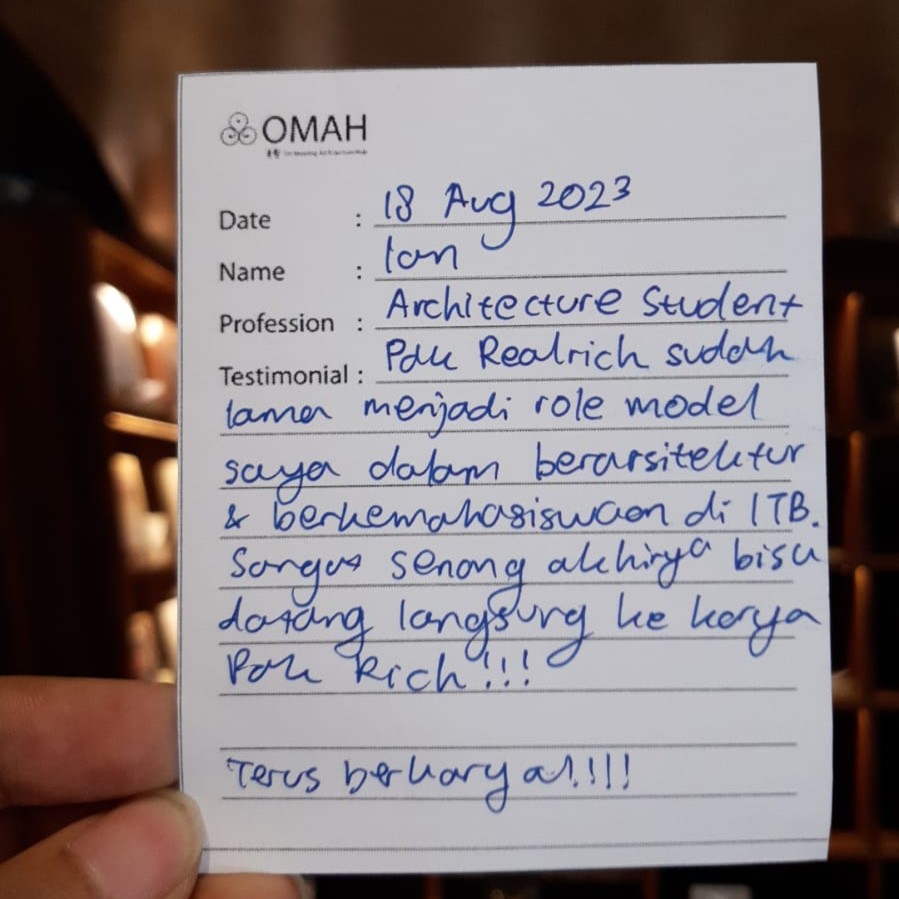 OMAH
Date : 18 Aug 2023
Name : Ian
Profession : Architecture Student
Testimonial : Pak Realrich sudah
lama menjadi role model
saya dalam berarsitektur
& berkemahasiswaan di ITB.
Sangat senang akhirya bisa
datang langsung ke karya
Pak Rich!!!
Terus berkarya!!!!